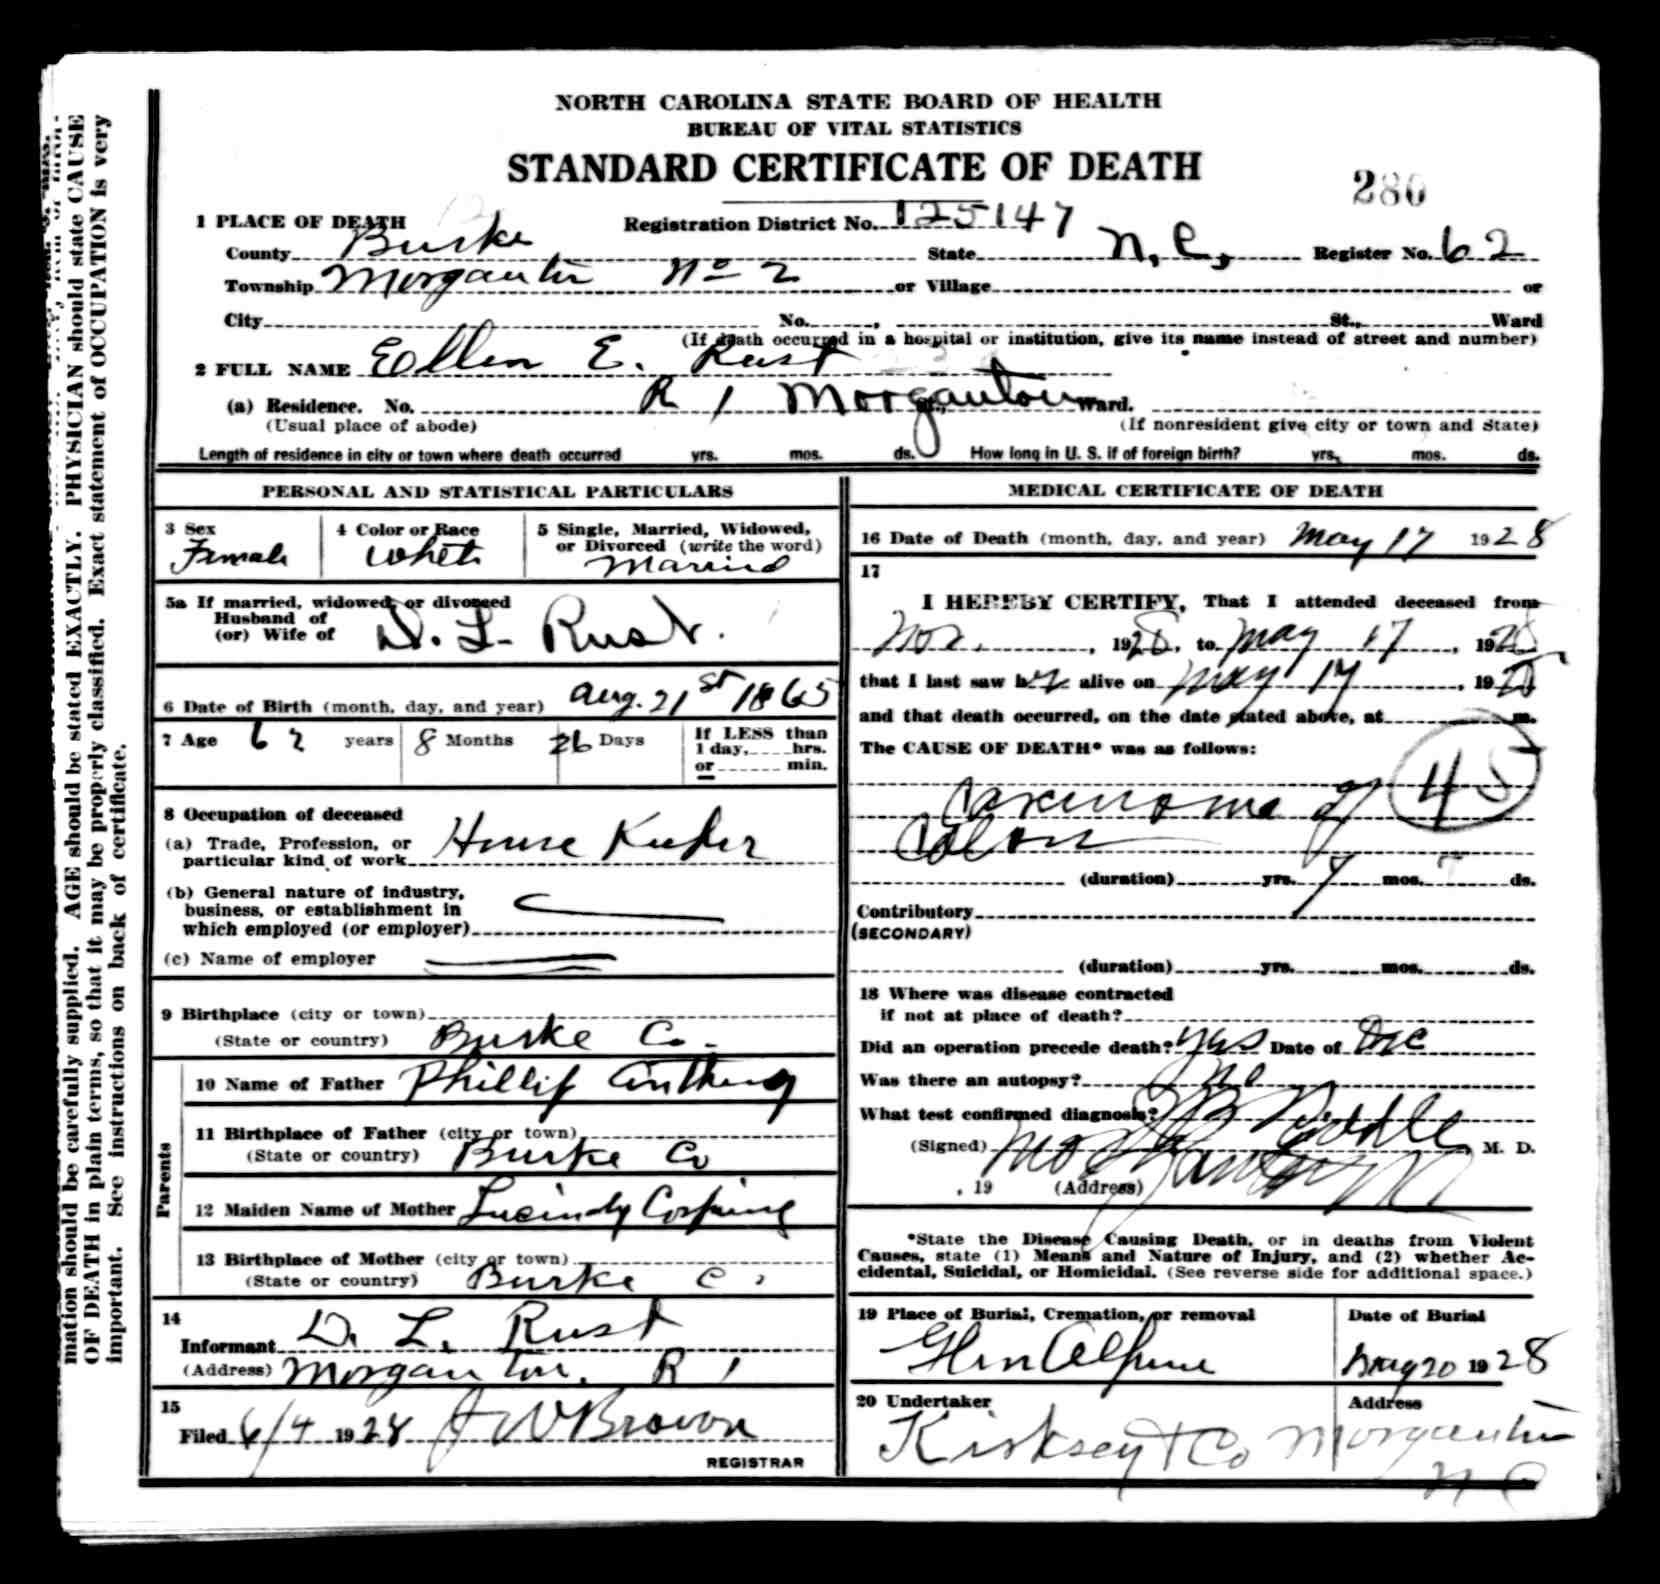 NORTH CAROLINA STATE BOARD OF HEALTH
BUREAU OF VITAL STATISTICS
STANDARD CERTIFICATE OF DEATH
280
1 PLACE OF DEATH
Registration District No. 125147
County Burke State N. C, Register No. 62
Township Morganton No 2 or Village or
City No. , St., Ward
(If death occurred in a hospital or institution, give its name instead of street and number)
2 FULL NAME Ellen E. Rust
(a) Residence. No. R 1 Morganton St., Ward.
(Usual place of abode) (If nonresident give city or town and State)
Length of residence in city or town where death occurred yrs. mos. ds. How long in U. S. if of foreign birth? yrs. mos. ds.
PERSONAL AND STATISTICAL PARTICULARS
3 Sex
Female
4 Color or Race
White
5 Single, Married, Widowed,
or Divorced (write the word)
Married
5a If married, widowed, or divorced
Husband of
(or) Wife of D. L. Rust.
6 Date of Birth (month, day, and year) Aug. 21st 1865
7 Age 62 years 8 Months 26 Days
If LESS than
1 day, hrs.
or min.
8 Occupation of deceased
(a) Trade, Profession, or
particular kind of work House Keeper
(b) General nature of industry,
business, or establishment in
which employed (or employer)
(c) Name of employer
9 Birthplace (city or town)
(State or country) Burke Co.
Parents
10 Name of Father Phillip Anthony
11 Birthplace of Father (city or town)
(State or country) Burke Co
12 Maiden Name of Mother Lucindy
13 Birthplace of Mother (city or town)
(State or country) Burke C.
14
Informant D. L. Rust
(Address) Morganton. R 1
15
Filed 6/4 1928 J W Brown
REGISTRAR
MEDICAL CERTIFICATE OF DEATH
16 Date of Death (month, day, and year) May 17 1928
17
I HEREBY CERTIFY, That I attended deceased from
Nov. , 1928, to May 17, 1928
that I last saw her alive on May 17, 1928
and that death occurred, on the date stated above, at m.
The CAUSE OF DEATH* was as follows:
45
Carcinoma of
Colon
(duration) yrs. 7 mos. ds.
Contributory
(SECONDARY)
(duration) yrs. mos. ds.
18 Where was disease contracted
if not at place of death?
Did an operation precede death? yes Date of Dec
Was there an autopsy? no
What test confirmed diagnosis?
(Signed) J B Riddle M. D.
, 19 (Address) Morganton NC
*State the Disease Causing Death, or in deaths from Violent
Causes, state (1) Means and Nature of Injury, and (2) whether Ac-
cidental, Suicidal, or Homicidal. (See reverse side for additional space.)
19 Place of Burial, Cremation, or removal
Glen Alpine
Date of Burial
May 20 1928
20 Undertaker
Kirksey + Co
Address
Morganton
N C
mation should be carefully supplied. AGE should be stated EXACTLY. PHYSICIAN should state CAUSE
OF DEATH in plain terms, so that it may be properly classified. Exact statement of OCCUPATION is very
important. See instructions on back of certificate.